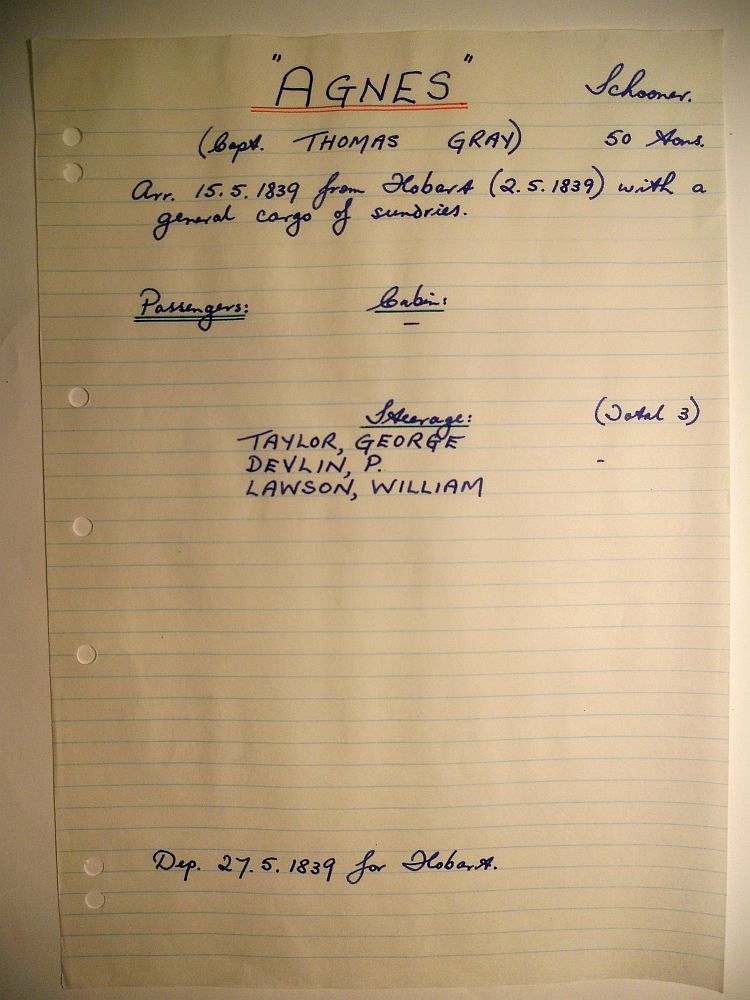 "AGNES" Schooner.
(Capt. THOMAS GRAY) 50 tons.
Arr. 15.5.1839 from Hobart (2.5.1839) with a
general cargo of sundries.
Passengers: Cabin:
–
Steerage: (Total 3)
TAYLOR, GEORGE
DEVLIN, P. -
LAWSON, WILLIAM
Dep. 27.5.1839 for Hobart.